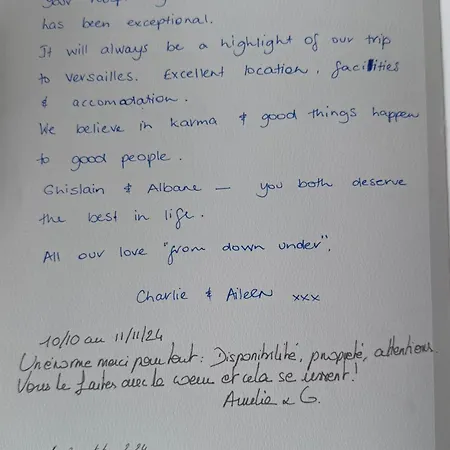 has been exceptional.
It will always be a highlight of our trip
to Versailles. Excellent location, facilities
& accomodation.
We believe in karma & good things happen
to good people.
Ghislain & Albane — you both deserve
the best in life.
All our love "from down under".
Charlie & Aileen xxx
10/10 au 11/11/24
Un énorme merci pour tout : Disponibilité, propreté, attentions.
Vous le faites avec le coeur et cela se ressent !
Amelia & G.